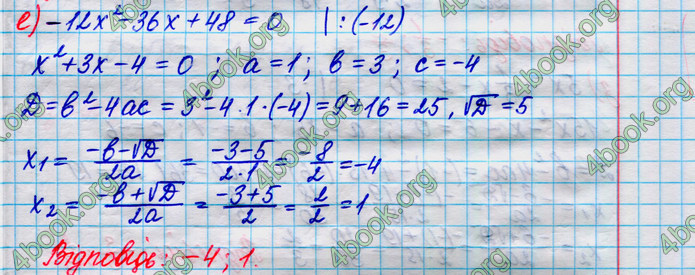 е) -12x² - 36x + 48 = 0 | : (-12)
x² + 3x - 4 = 0 ; a = 1 ; b = 3 ; c = -4
D = b² - 4ac = 3² - 4 · 1 · (-4) = 9 + 16 = 25, √D = 5
x₁ = (-b - √D)/(2a) = (-3 - 5)/(2 · 1) = -8/2 = -4
x₂ = (-b + √D)/(2a) = (-3 + 5)/2 = 2/2 = 1
Відповідь: -4 ; 1.
4book.org